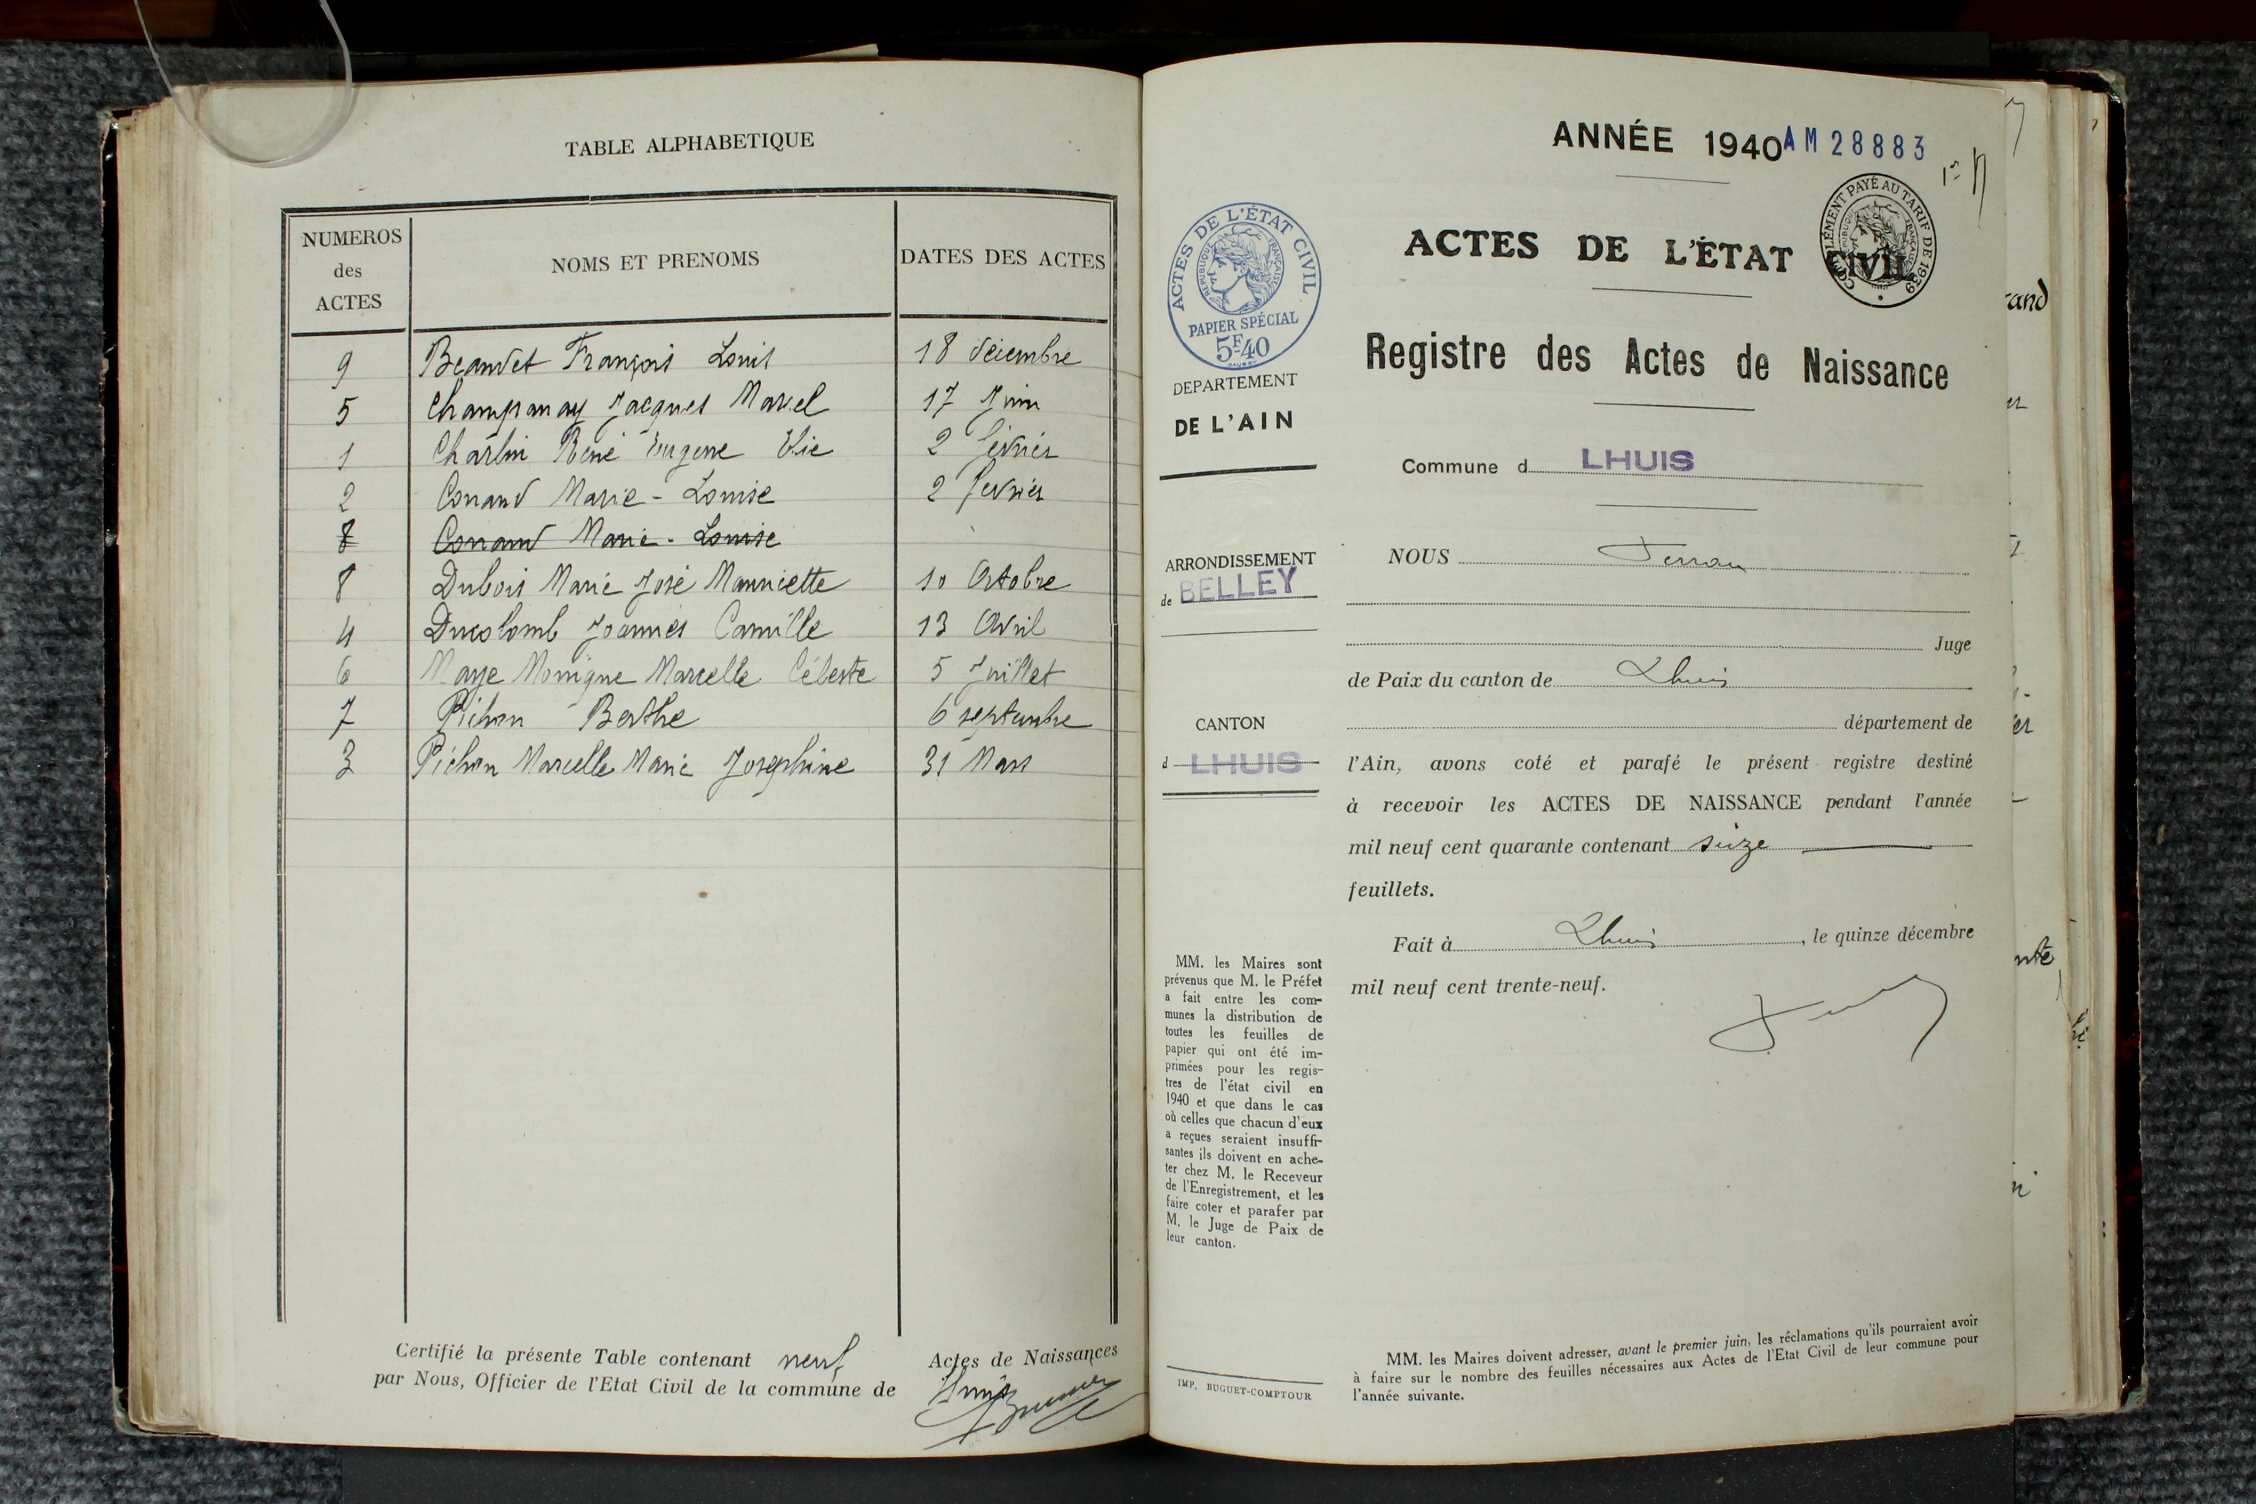 TABLE ALPHABETIQUE
NUMEROS des ACTES
NOMS ET PRENOMS
DATES DES ACTES
9 Beaudet François Louis 18 décembre
5 Champanay Jacques Marcel 17 Juin
1 Charlin René Eugene Elie 2 février
2 Conand Marie - Louise 2 fevrier
8 Conand Marie - Louise
8 Dubois Marie José Mauricette 10 Octobre
4 Ducolomb Joannès Camille 13 Avril
6 Maye Monique Marcelle Céleste 5 Juillet
7 Pichon Berthe 6 septembre
3 Pichon Marcelle Marie Josephine 31 Mars
Certifié la présente Table contenant neuf Actes de Naissances
par Nous, Officier de l'Etat Civil de la commune de Lhuis
ANNÉE 1940 AM 28883
ACTES DE L'ÉTAT CIVIL
COMPLÉMENT PAYÉ AU TARIF DE 1939
RÉPUBLIQUE FRANÇAISE
ACTES DE L'ÉTAT CIVIL
RÉPUBLIQUE FRANÇAISE
PAPIER SPÉCIAL
5F40
Registre des Actes de Naissance
DEPARTEMENT
DE L'AIN
Commune d LHUIS
ARRONDISSEMENT
de BELLEY
CANTON
d LHUIS
NOUS
Juge
de Paix du canton de Lhuis
département de
l'Ain, avons coté et parafé le présent registre destiné
à recevoir les ACTES DE NAISSANCE pendant l'année
mil neuf cent quarante contenant seize
feuillets.
Fait à Lhuis, le quinze décembre
mil neuf cent trente-neuf.
MM. les Maires sont
prévenus que M. le Préfet
a fait entre les com-
munes la distribution de
toutes les feuilles de
papier qui ont été im-
primées pour les regis-
tres de l'état civil en
1940 et que dans le cas
où celles que chacun d'eux
a reçues seraient insuffi-
santes ils doivent en ache-
ter chez M. le Receveur
de l'Enregistrement, et les
faire coter et parafer par
M. le Juge de Paix de
leur canton.
IMP. BUGUET-COMPTOUR
MM. les Maires doivent adresser, avant le premier juin, les réclamations qu'ils pourraient avoir
à faire sur le nombre des feuilles nécessaires aux Actes de l'Etat Civil de leur commune pour
l'année suivante.